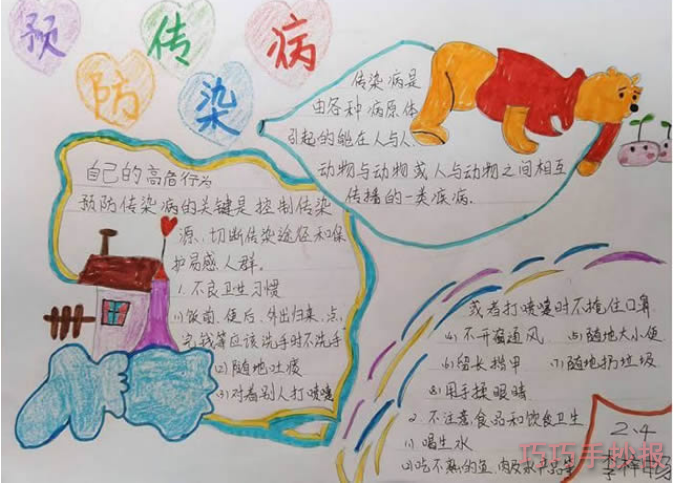 预防传染病
传染病是
由各种病原体
引起的能在人与人、
动物与动物或人与动物之间相互
传播的一类疾病.
自己的高危行为
预防传染病的关键是控制传染
源、切断传染途径和保
护易感人群。
1.不良卫生习惯
(1)饭前、便后、外出归来、点
完钱等应该洗手时不洗手
(2)随地吐痰
(3)对着别人打喷嚏
或者打喷嚏时不捂住口鼻
(4)不开窗通风 (5)随地大小便
(6)留长指甲 (7)随地扔垃圾
(8)用手揉眼睛
2.不注意食品和饮食卫生
(1)喝生水
(2)吃不熟的鱼、肉及水产品等
2.4
巧巧手抄报